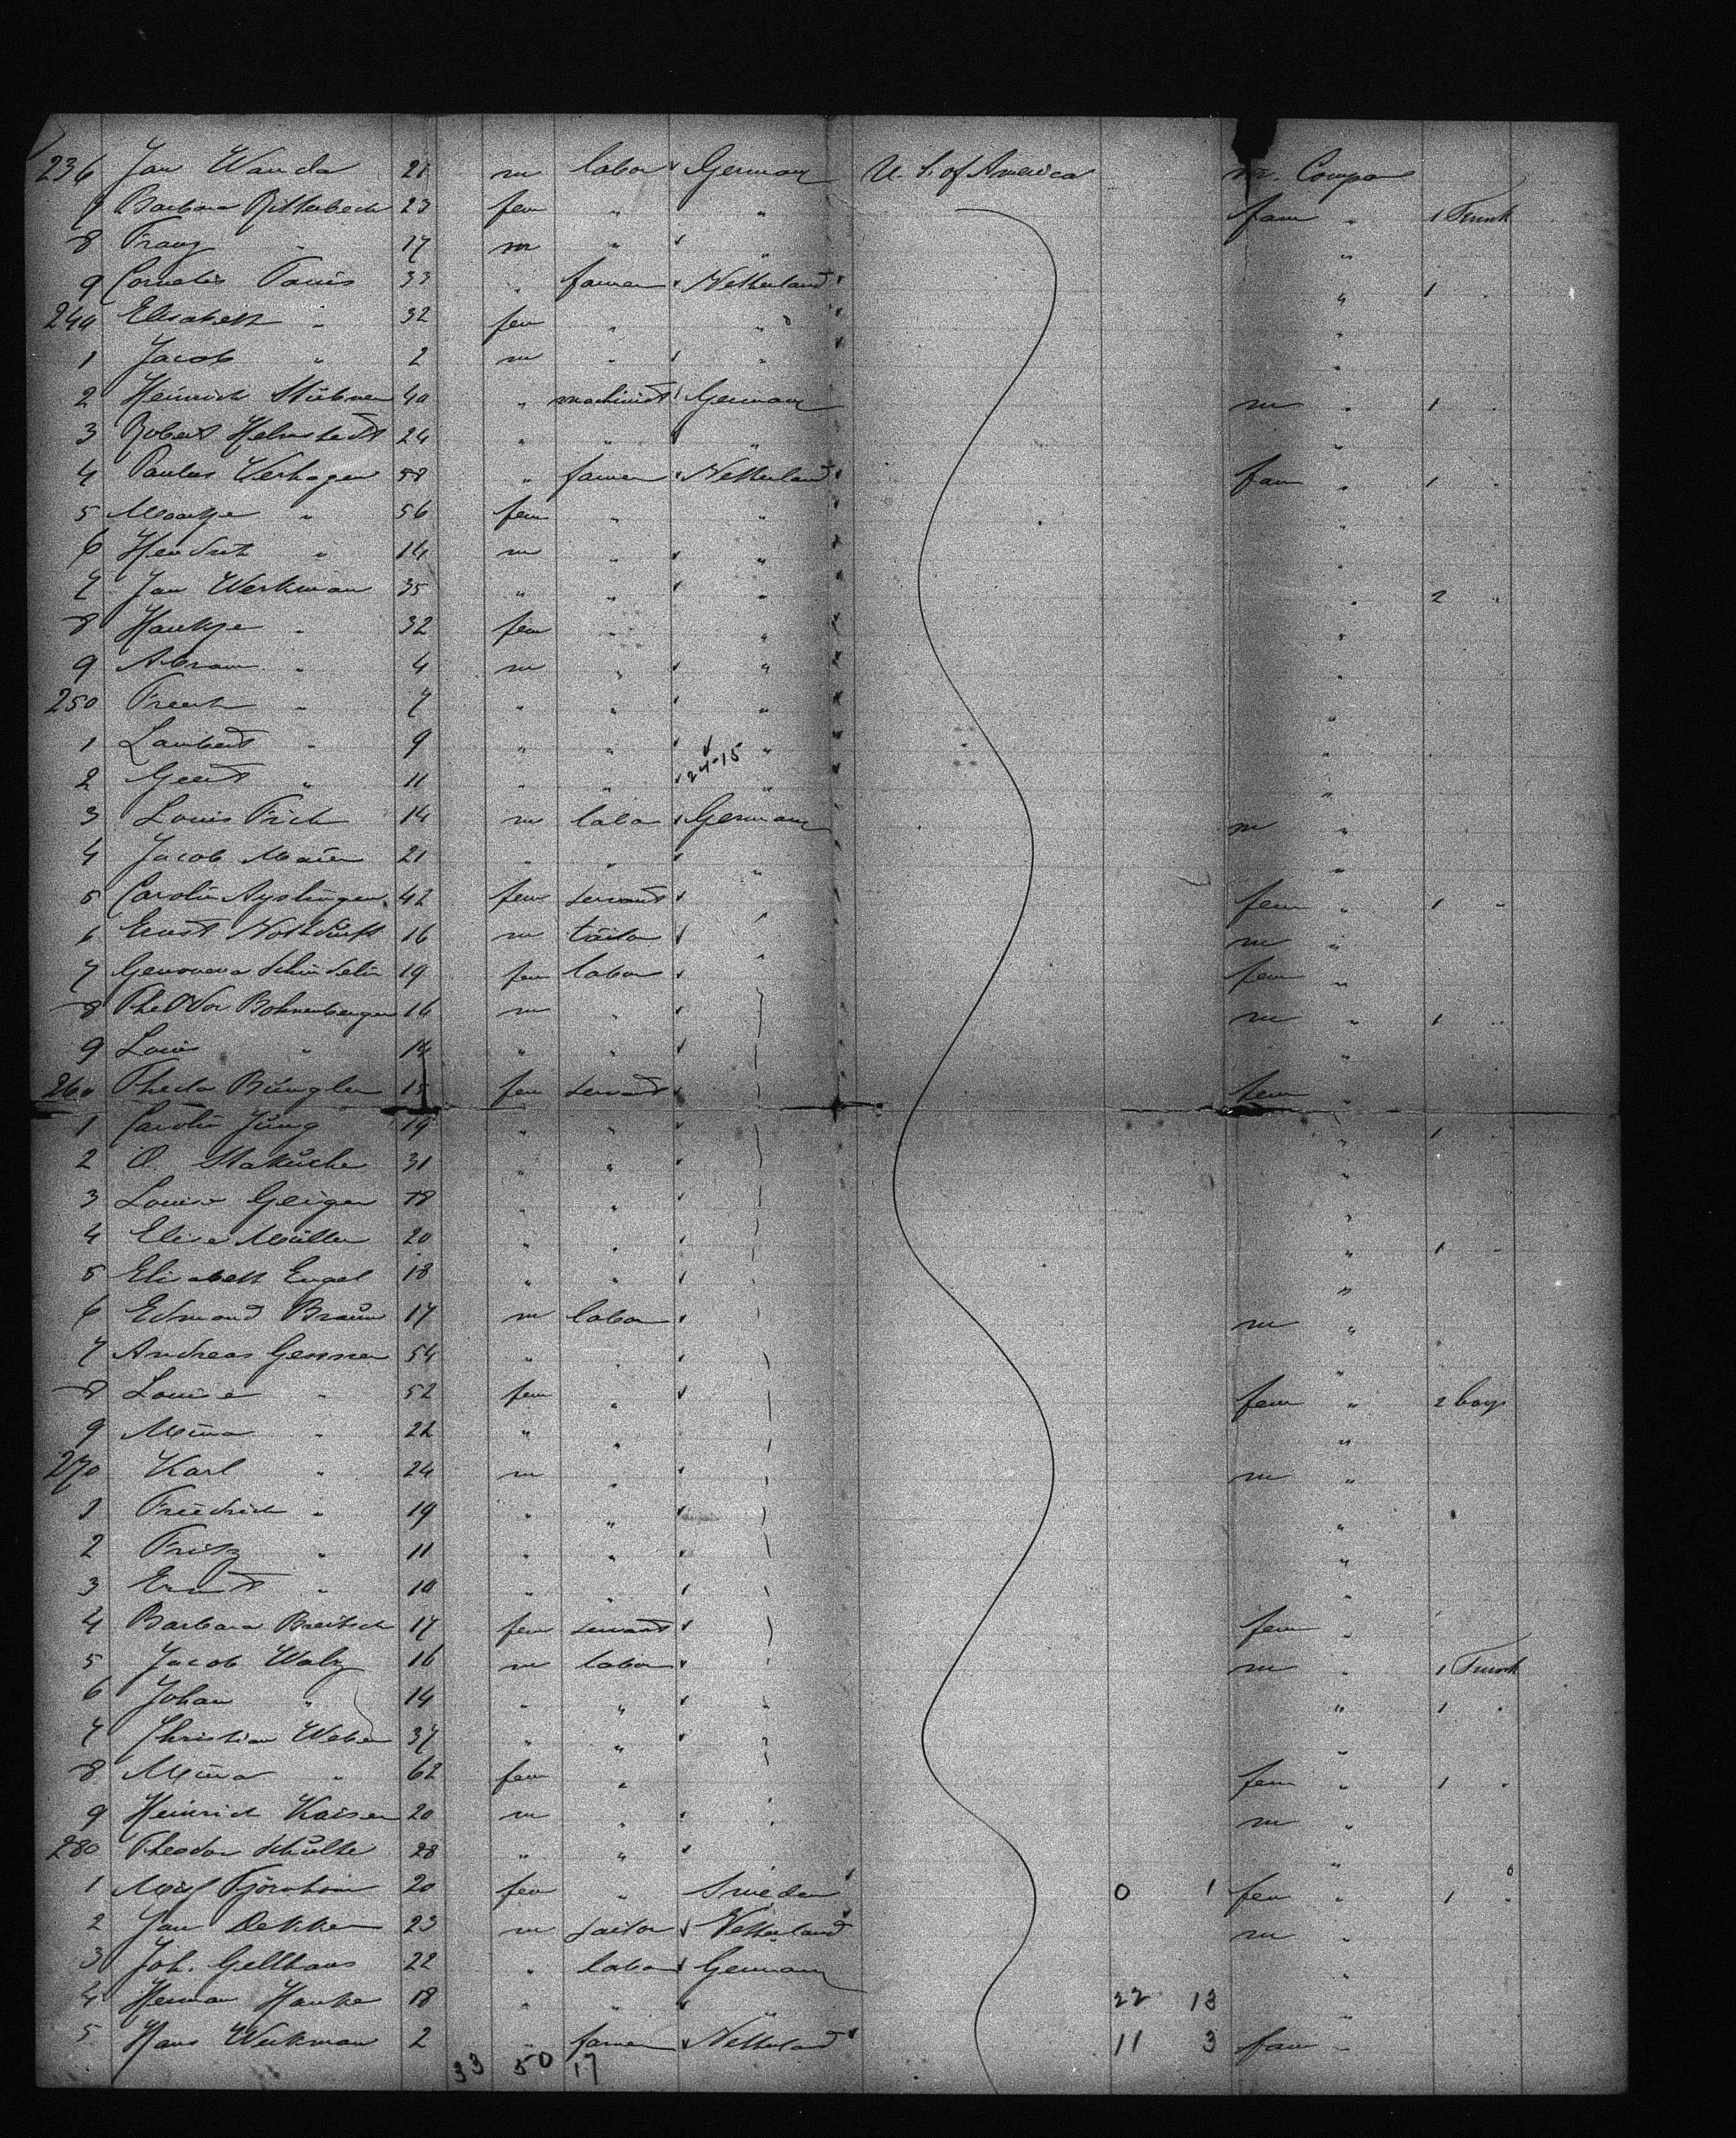 236 Jan Wanda 21 m labor Germany U. S. of America m. Compa
7 Barbara Ritterbech 23 fem " " fam " 1 Trunk
8 Franz " 17 m " " "
9 Cornelis 33 " farmer Netherland " 1 "
240 Elisabeth " 32 fem " " "
1 Jacob " 2 m " " "
2 Heinrich Stübner 40 " machinist Germany m " 1 "
3 Robert Helmstedt 24 " " " "
4 Paulus Verhagen 58 " farmer Netherland fam " 1 "
5 Maatje " 56 fem " " "
6 Hendrik " 14 m " " "
7 Jan Werkman 35 " " " " 2 "
8 Haukje " 32 fem " " "
9 Abram " 4 m " " "
250 Freerk " 7 " " " "
1 Lambert " 9 " " " "
24-15
2 Geert " 11 " " " "
3 Louis Frich 14 m labor Germany m "
4 Jacob Maier 21 " " " "
5 Carolin Ayslinger 42 fem servant fem " 1 "
6 Ernst Nothdurft 16 m tailor m "
7 Genoveva Schindelin 19 fem labor fem "
8 Theodor Bohnenberger 16 m " m " 1 "
9 Louis " 14 " " "
260 Theda Büngler 15 fem servant fem "
1 Carolin Jung 19 " " " 1 "
2 O. Stakusche 31 " " "
3 Louise Geiger 18 " " "
4 Elise Müller 20 " " " 1 "
5 Elisabeth Engel 18 " " "
6 Edmond Braun 17 m labor m "
7 Andreas Genner 54 " " "
8 Louise " 52 fem " fem " 2 bags
9 Mina " 22 " " "
270 Karl " 24 m " m "
1 Friedrich " 19 " " "
2 Fritz " 11 " " "
3 Ernst " 10 " " "
4 Barbara Breitsch 17 fem servant fem "
5 Jacob Walz 16 m labor m " 1 Trunk
6 Johan " 14 " " " " 1 "
7 Christian Weber 37 " " " "
8 Mina " 62 fem " fem " 1 "
9 Heinrich Kaiser 20 m " m "
280 Theodor Schulte 28 " " "
1 20 fem " Sweden 0 1 fem " 1 "
2 Jan Dekker 23 m sailor Netherland m "
3 Joh. Gellhaus 22 " labor Germany "
4 Herman Hanke 18 " " " 22 13 "
5 Hans Werkman 2 " farmer Netherland 11 3 fam "
33 50 17